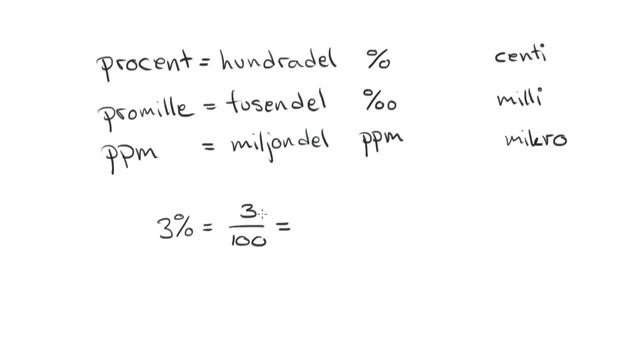 procent = hundradel % centi
promille = tusendel ‰ milli
ppm = miljondel ppm mikro
3% = 3/100 =